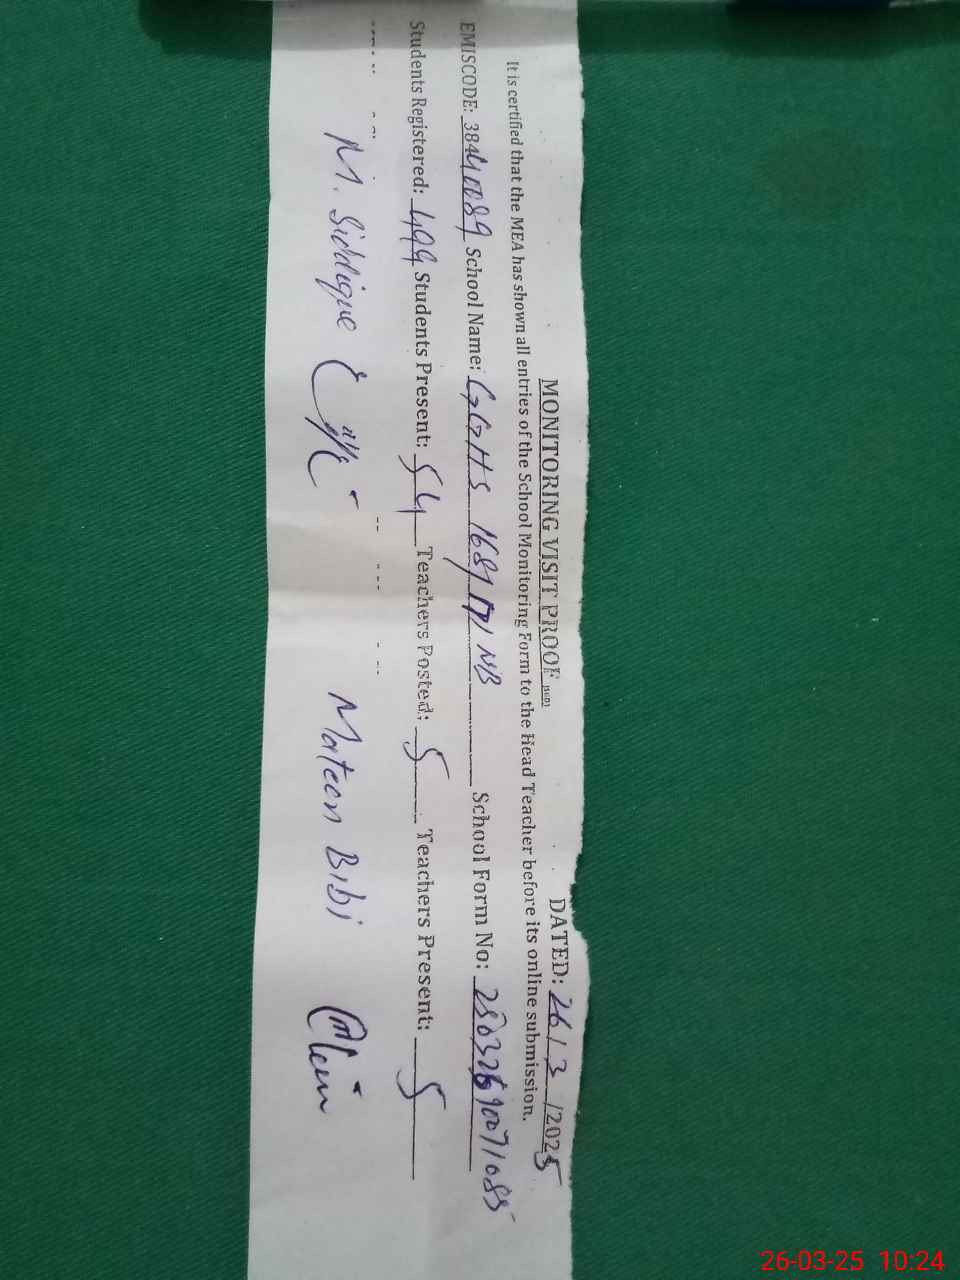 MONITORING VISIT PROOF DATED: 26/3/2025
It is certified that the MEA has shown all entries of the School Monitoring Form to the Head Teacher before its online submission.
EMISCODE: 38440089 School Name: GGHS 168/171 NB School Form No:
Students Registered: 499 Students Present: 54 Teachers Posted: 5 Teachers Present: 5
M. Siddique Mateen Bibi
26-03-25 10:24